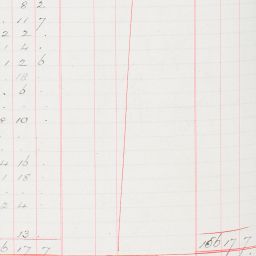 8 2
. 11 7
2 2 .
1 4 .
1 2 6
. 18 .
. 6 .
. . .
10 .
. .
. . .
4 16 .
1 18 .
. . .
2 4 .
13 .
6 17 7 166 17 7